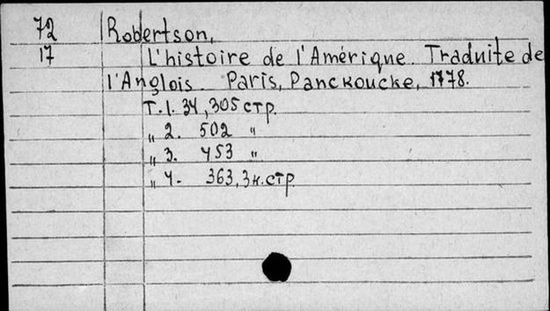 72 Robertson,
17 L'histoire de l'Amérique. Traduite de
l'Anglois. Paris, Panckoucke, 1778.
Т.1. 34, 305 стр.
„ 2. 502 „
„ 3. 453 „
„ 4. 363, 3 н. стр.